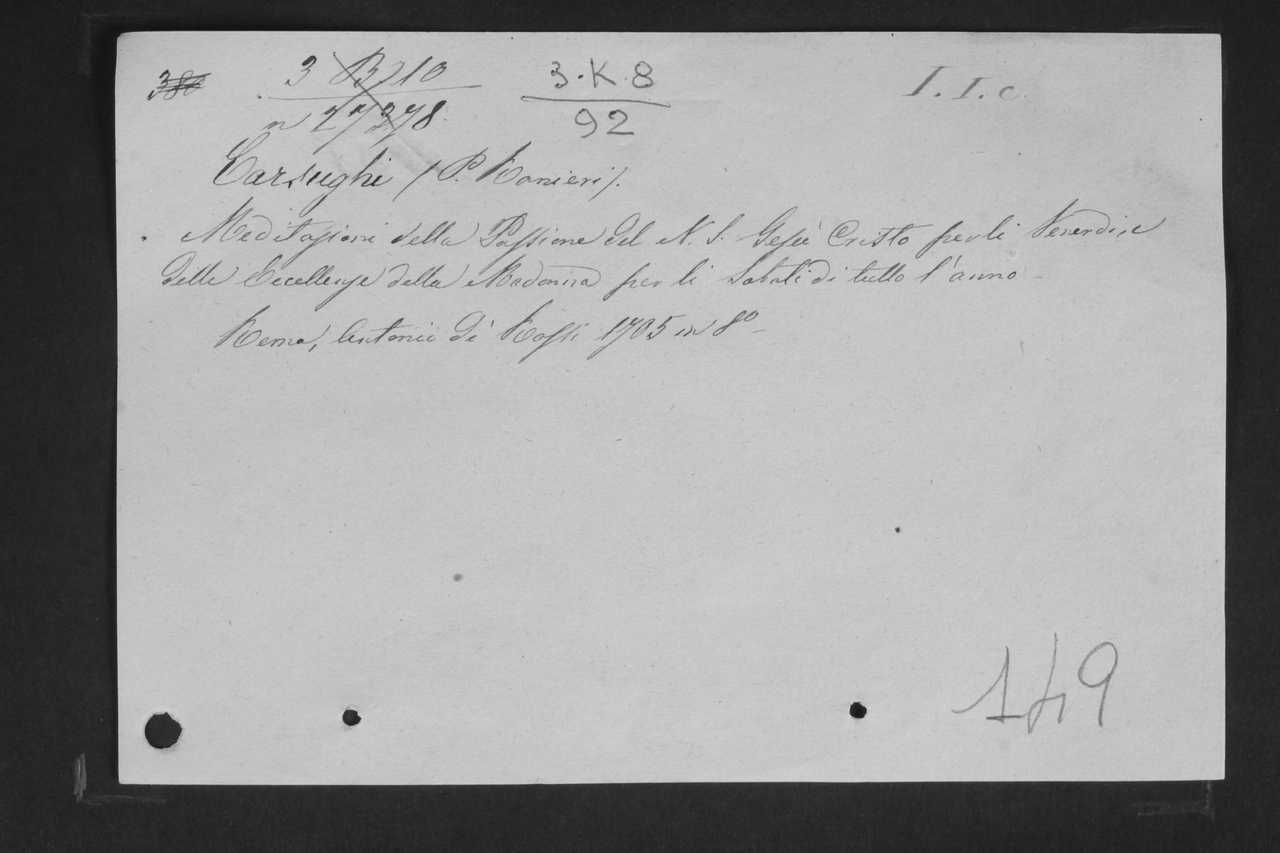 380
3 B 210
n 27378
3.K.8
92
I. I. c.
Carsughi (P. Ranieri).
Meditazioni della Passione del N. S. Gesù Cristo per li Venerdì, e
delle Eccellenze della Madonna per li Sabati di tutto l'anno
Roma, Antonio de' Rossi 1705 in 8º
149